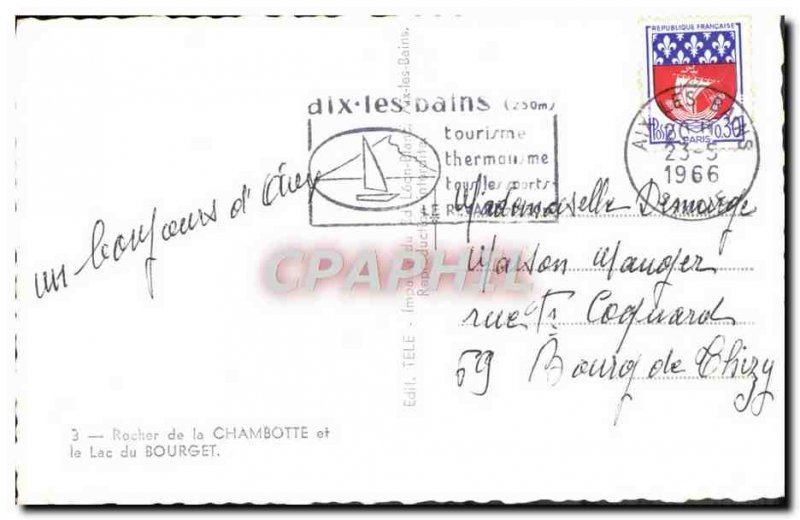 REPUBLIQUE FRANÇAISE
Postes 0,30
PARIS
AIX LES BAINS
23-5
1966
aix·les·bains (250m)
tourisme
thermalisme
tous les sports
un bonjour d'Aix
Mademoiselle
Maison Mauger
rue Coquard
69 Bourg de Thizy
CPAPHIL
Edit. TELE - Léon-Blanc, Aix-les-Bains.
Reproduction interdite
3 — Rocher de la CHAMBOTTE et
le Lac du BOURGET.